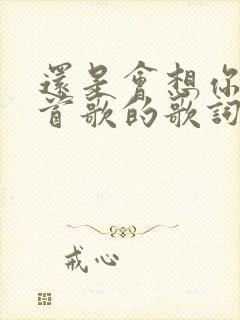 還是會想你
首歌的歌詞
戒心